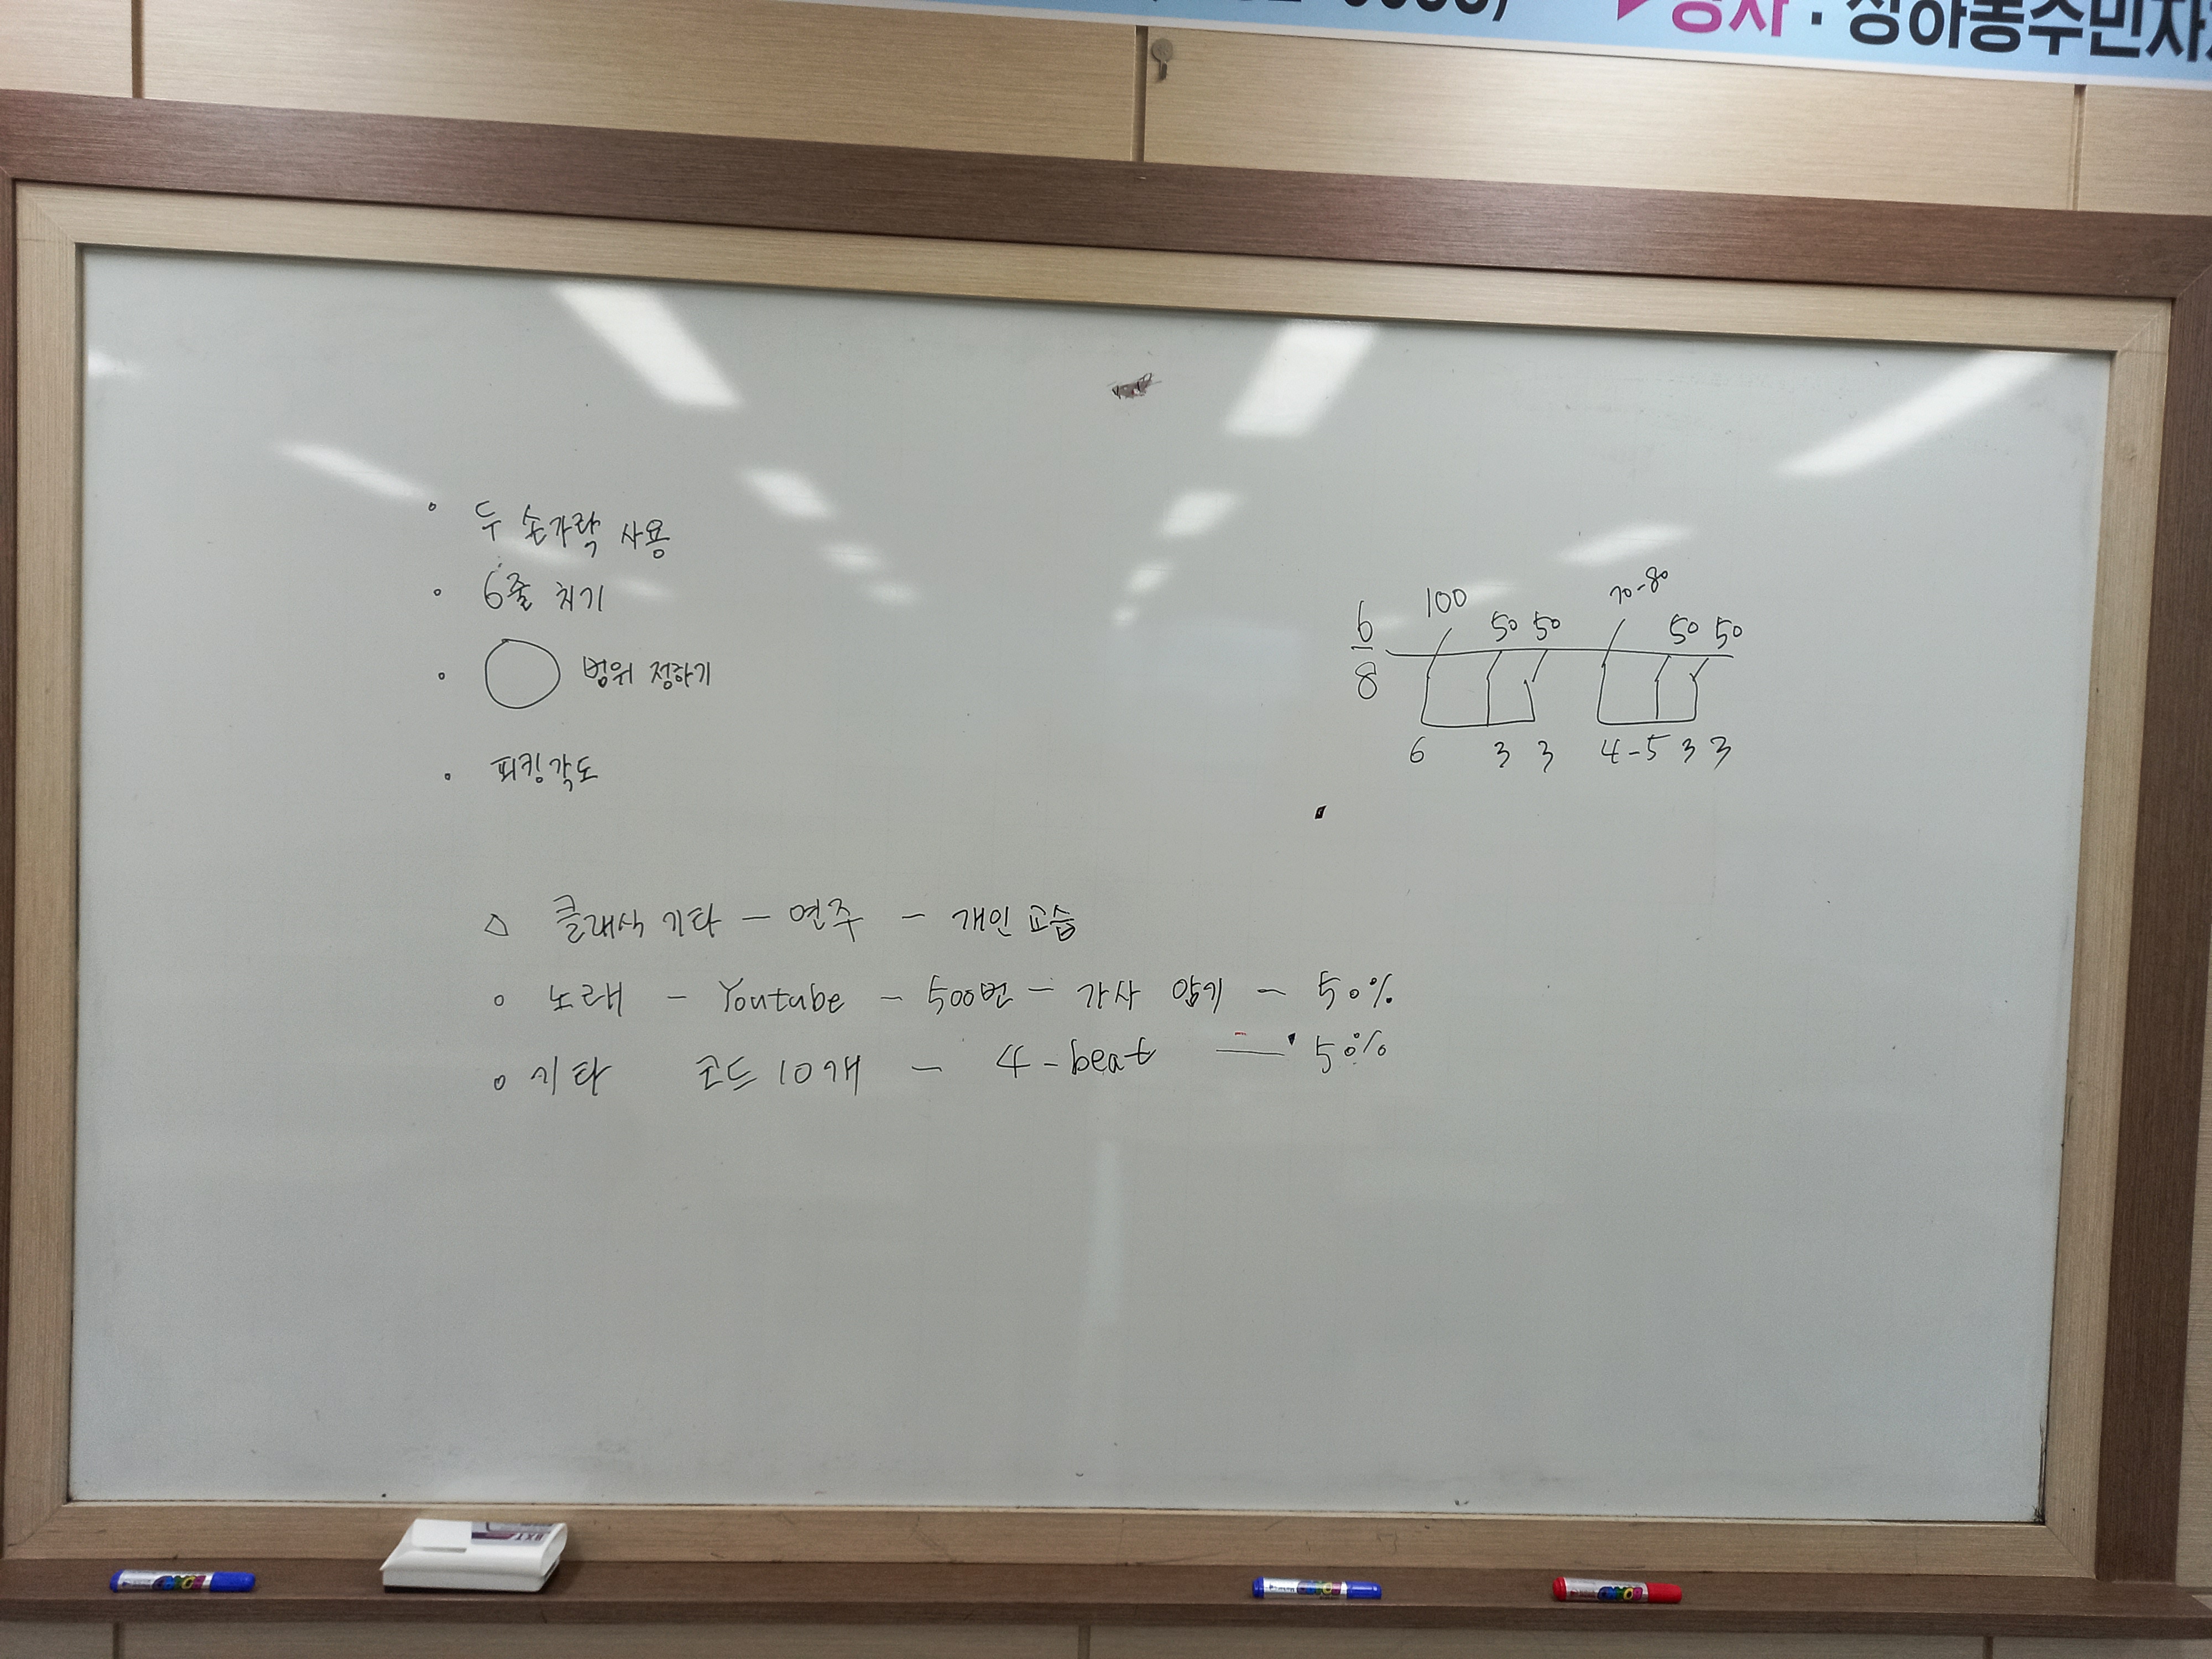 강사 · 상아동주민자
° 두 손가락 사용
° 6줄 치기
° 범위 정하기
° 피킹각도
100 70-80
6/8 50 50 50 50
6 3 3 4-5 3 3
△ 클래식 기타 - 연주 - 개인 교습
○ 노래 - Youtube - 500번 - 가사 암기 - 50%
○ 기타 코드 10개 - 4-beat — 50%